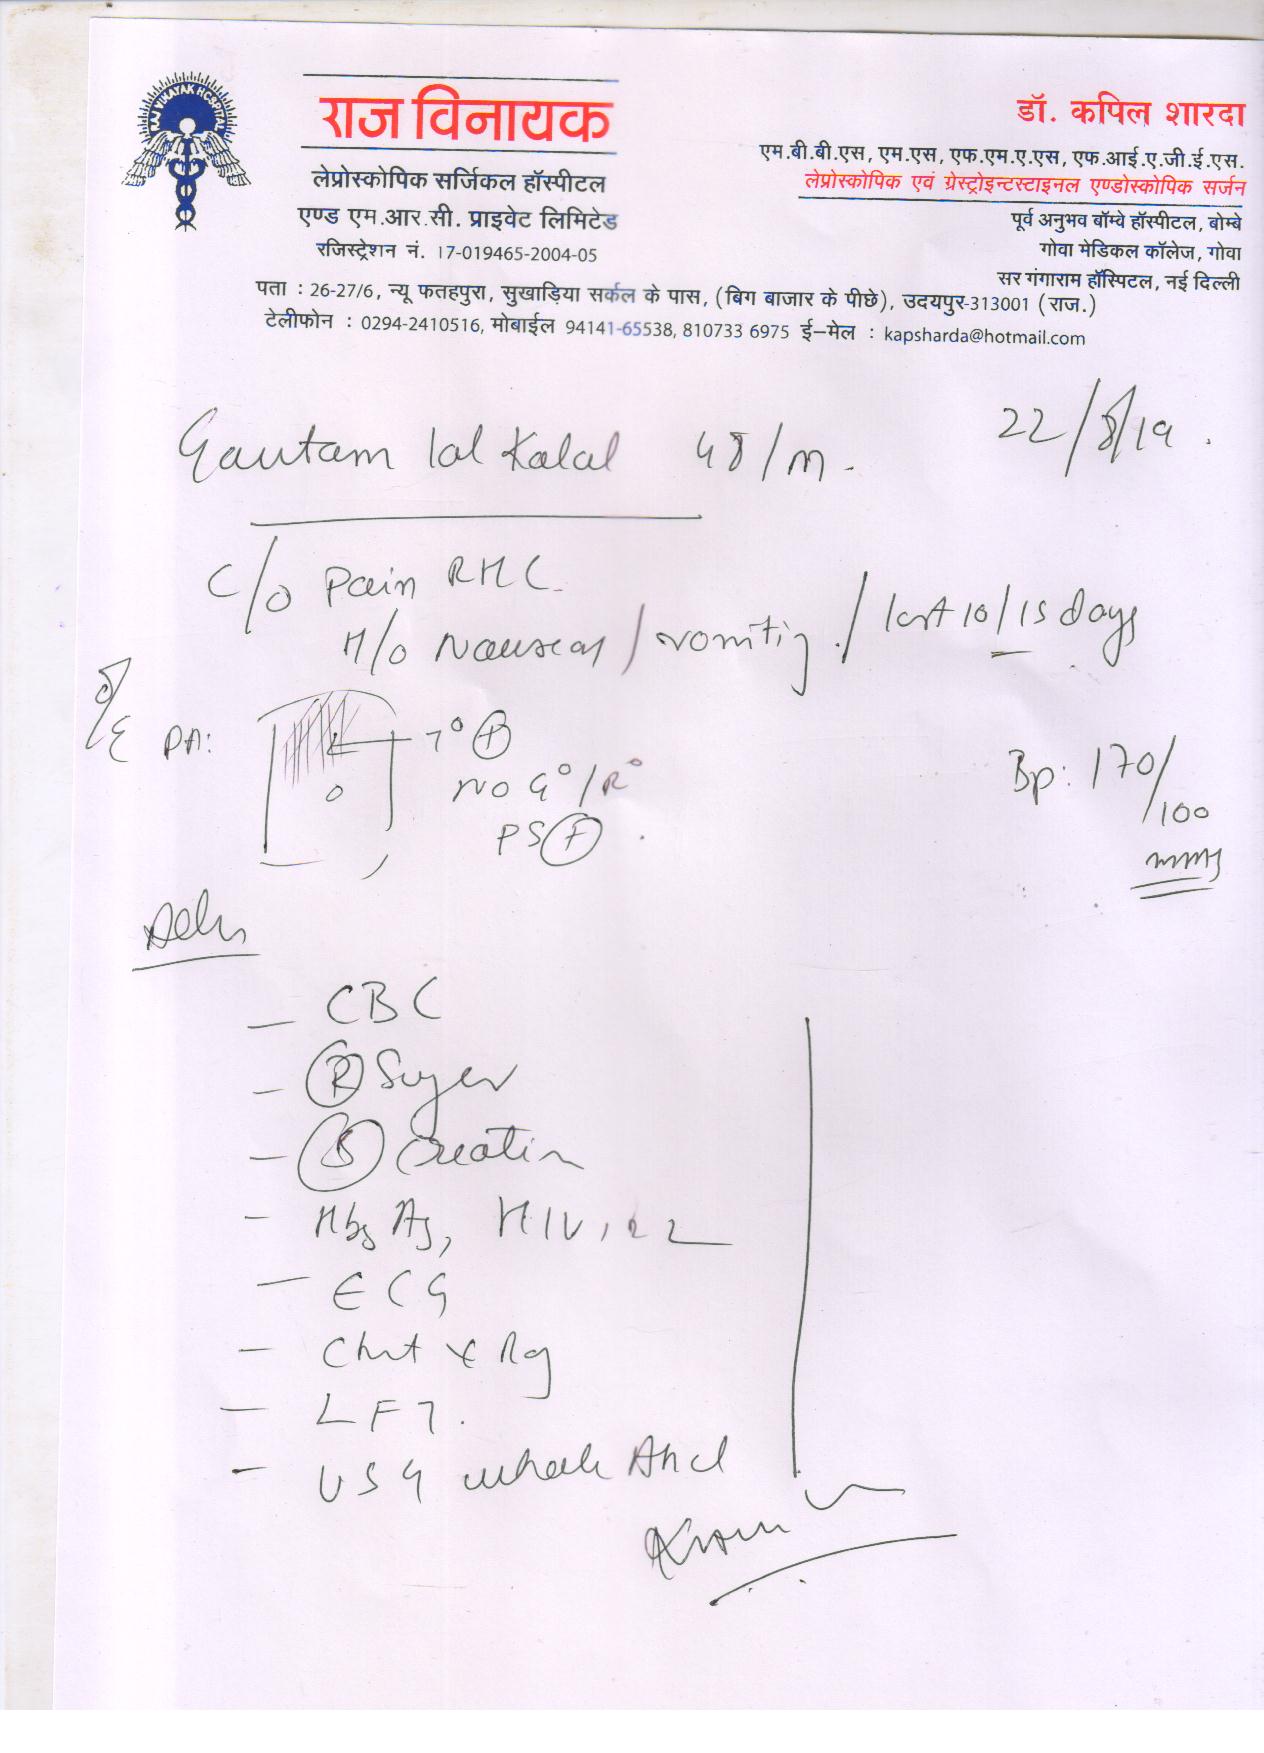 RAJ VINAYAK HOSPITAL
राज विनायक
लेप्रोस्कोपिक सर्जिकल हॉस्पीटल
एण्ड एम.आर.सी. प्राइवेट लिमिटेड
रजिस्ट्रेशन नं. 17-019465-2004-05
डॉ. कपिल शारदा
एम.बी.बी.एस, एम.एस, एफ.एम.ए.एस, एफ.आई.ए.जी.ई.एस.
लेप्रोस्कोपिक एवं ग्रेस्ट्रोइन्टस्टाइनल एण्डोस्कोपिक सर्जन
पूर्व अनुभव बॉम्बे हॉस्पीटल, बोम्बे
गोवा मेडिकल कॉलेज, गोवा
सर गंगाराम हॉस्पिटल, नई दिल्ली
पता : 26-27/6, न्यू फतहपुरा, सुखाड़िया सर्कल के पास, (बिग बाजार के पीछे), उदयपुर-313001 (राज.)
टेलीफोन : 0294-2410516, मोबाईल 94141-65538, 810733 6975 ई-मेल : kapsharda@hotmail.com
22/8/19.
Gautam lal Kalal 48/m.
C/o Pain RHC
H/o Nausea / vomiting / last 10/15 days
O/E PA: T° +
No G°/R°
PS F
Bp: 170/100
mmHg
Adv
- CBC
- R Sugar
- S Creatin
- HbsAg, HIV 1, 2
- ECG
- Chest x Ray
- LFT.
- USG whole Abd